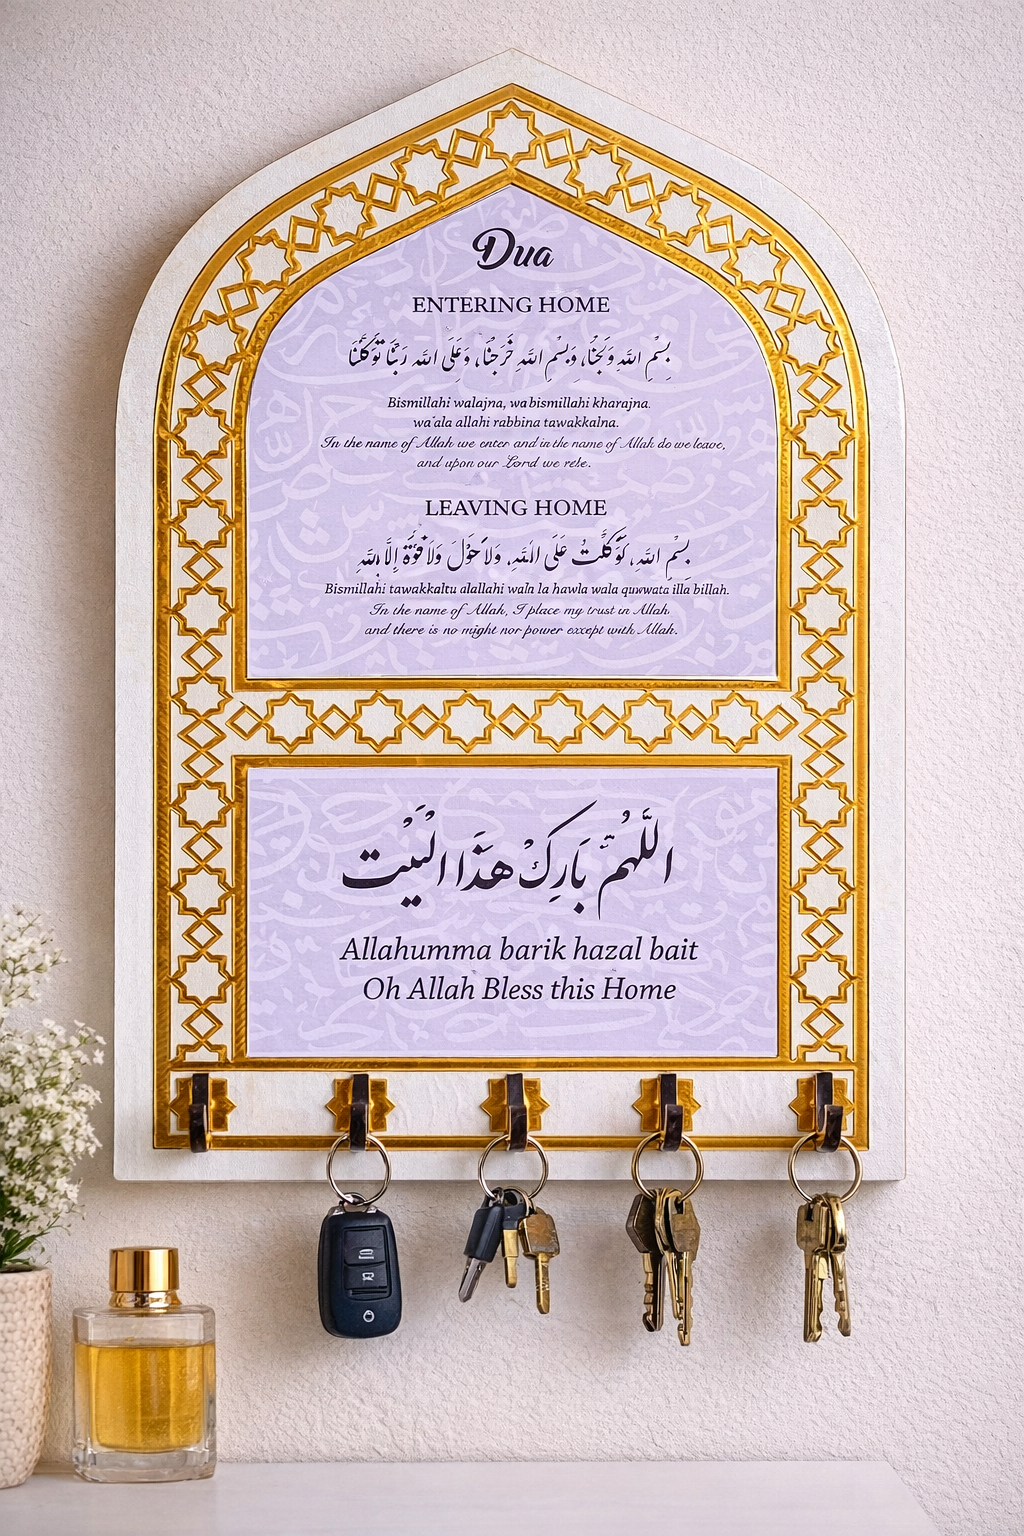 Dua
ENTERING HOME
بِسْمِ اللهِ وَلَجْنَا، وَبِسْمِ اللهِ خَرَجْنَا، وَعَلَى اللهِ رَبِّنَا تَوَكَّلْنَا
Bismillahi walajna, wa bismillahi kharajna.
wa'ala allahi rabbina tawakkalna.
In the name of Allah we enter and in the name of Allah do we leave,
and upon our Lord we rele.
LEAVING HOME
بِسْمِ اللهِ، تَوَكَّلْتُ عَلَى اللهِ، وَلاَ حَوْلَ وَلاَ قُوَّةَ إِلَّا بِاللهِ
Bismillahi tawakkaltu alallahi wala la hawla wala quwwata illa billah.
In the name of Allah, I place my trust in Allah
and there is no might nor power except with Allah.
اللَّهُمَّ بَارِكْ هَذَا الْبَيْت
Allahumma barik hazal bait
Oh Allah Bless this Home